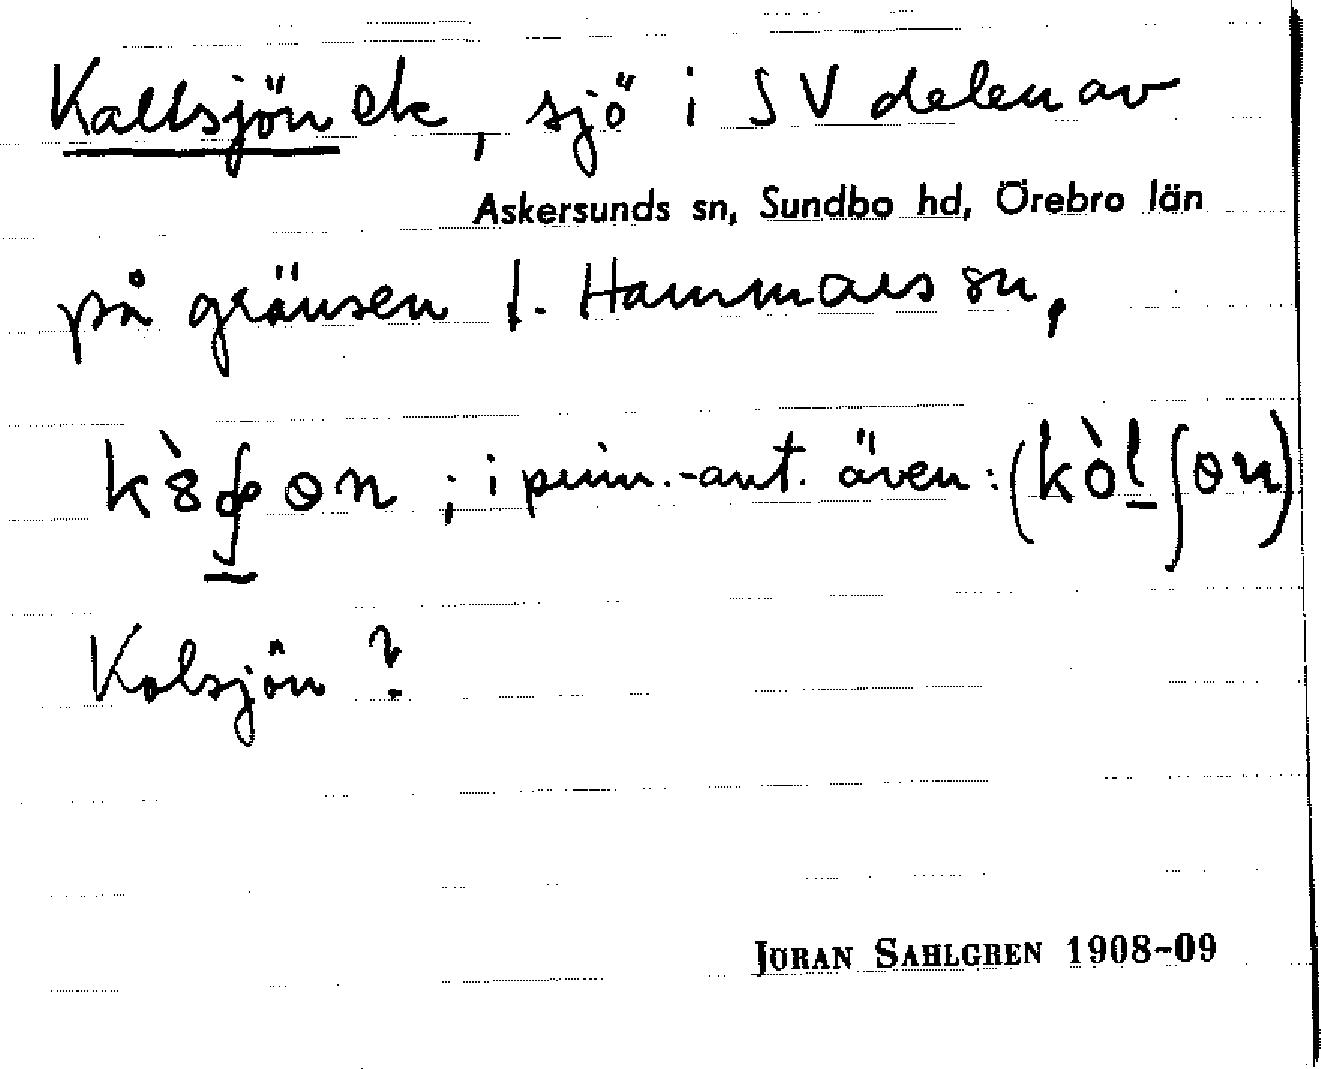 Kallsjön ek, sjö i SV delen av
Askersunds sn, Sundbo hd, Örebro län
på gränsen t. Hammars sn,
; i prim.-ant. även:
Kolsjön ?
JÖRAN SAHLGREN 1908-09